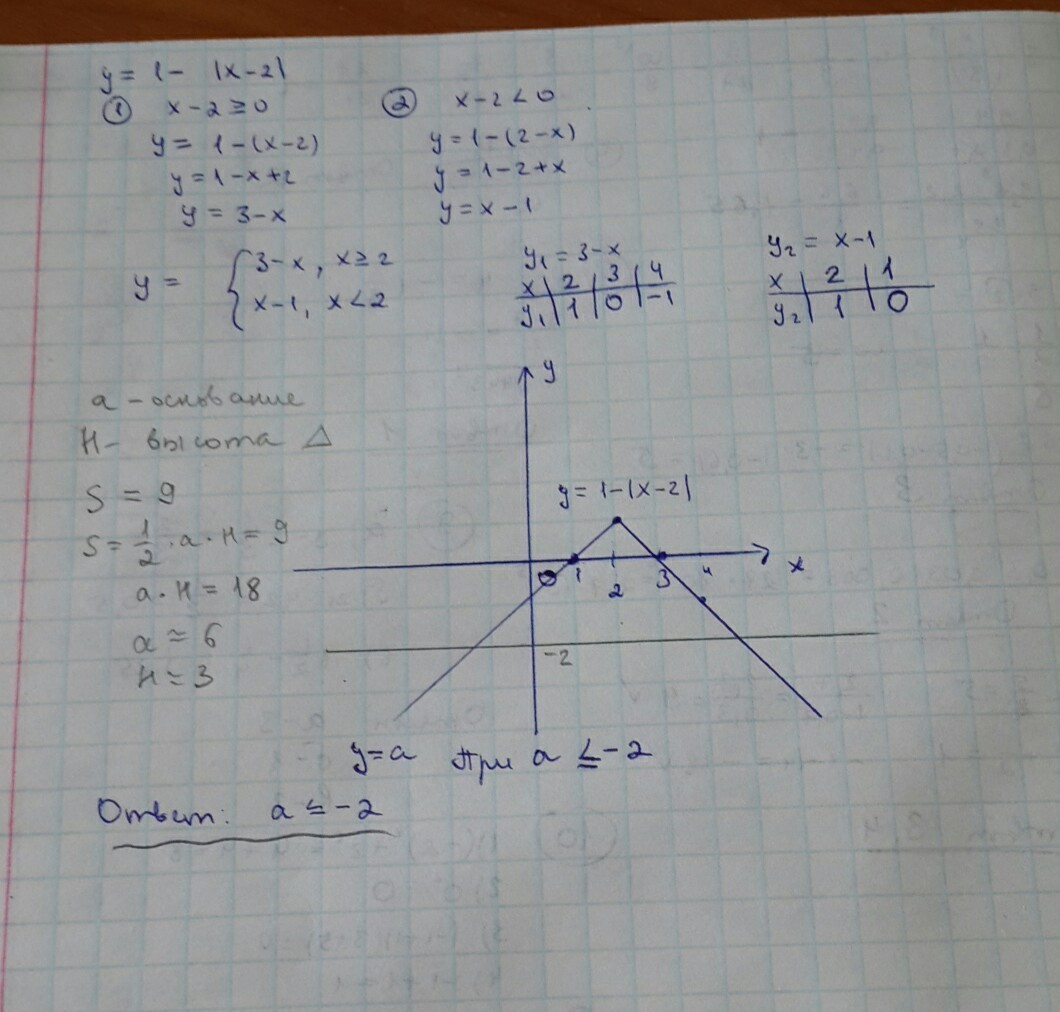 y = 1 - |x-2|
① x-2 ≥ 0
y = 1-(x-2)
y = 1-x+2
y = 3-x
② x-2 < 0
y = 1-(2-x)
y = 1-2+x
y = x-1
y = { 3-x, x ≥ 2
x-1, x < 2
y₁ = 3-x
x | 2 | 3 | 4
y₁ | 1 | 0 | -1
y₂ = x-1
x | 2 | 1
y₂ | 1 | 0
a - основание
H - высота Δ
S = 9
S = 1/2 · a · H = 9
a · H = 18
a = 6
H = 3
y
y = 1-|x-2|
0 1 2 3 4 x
-2
y = a При a ≤ -2
Ответ: a ≤ -2